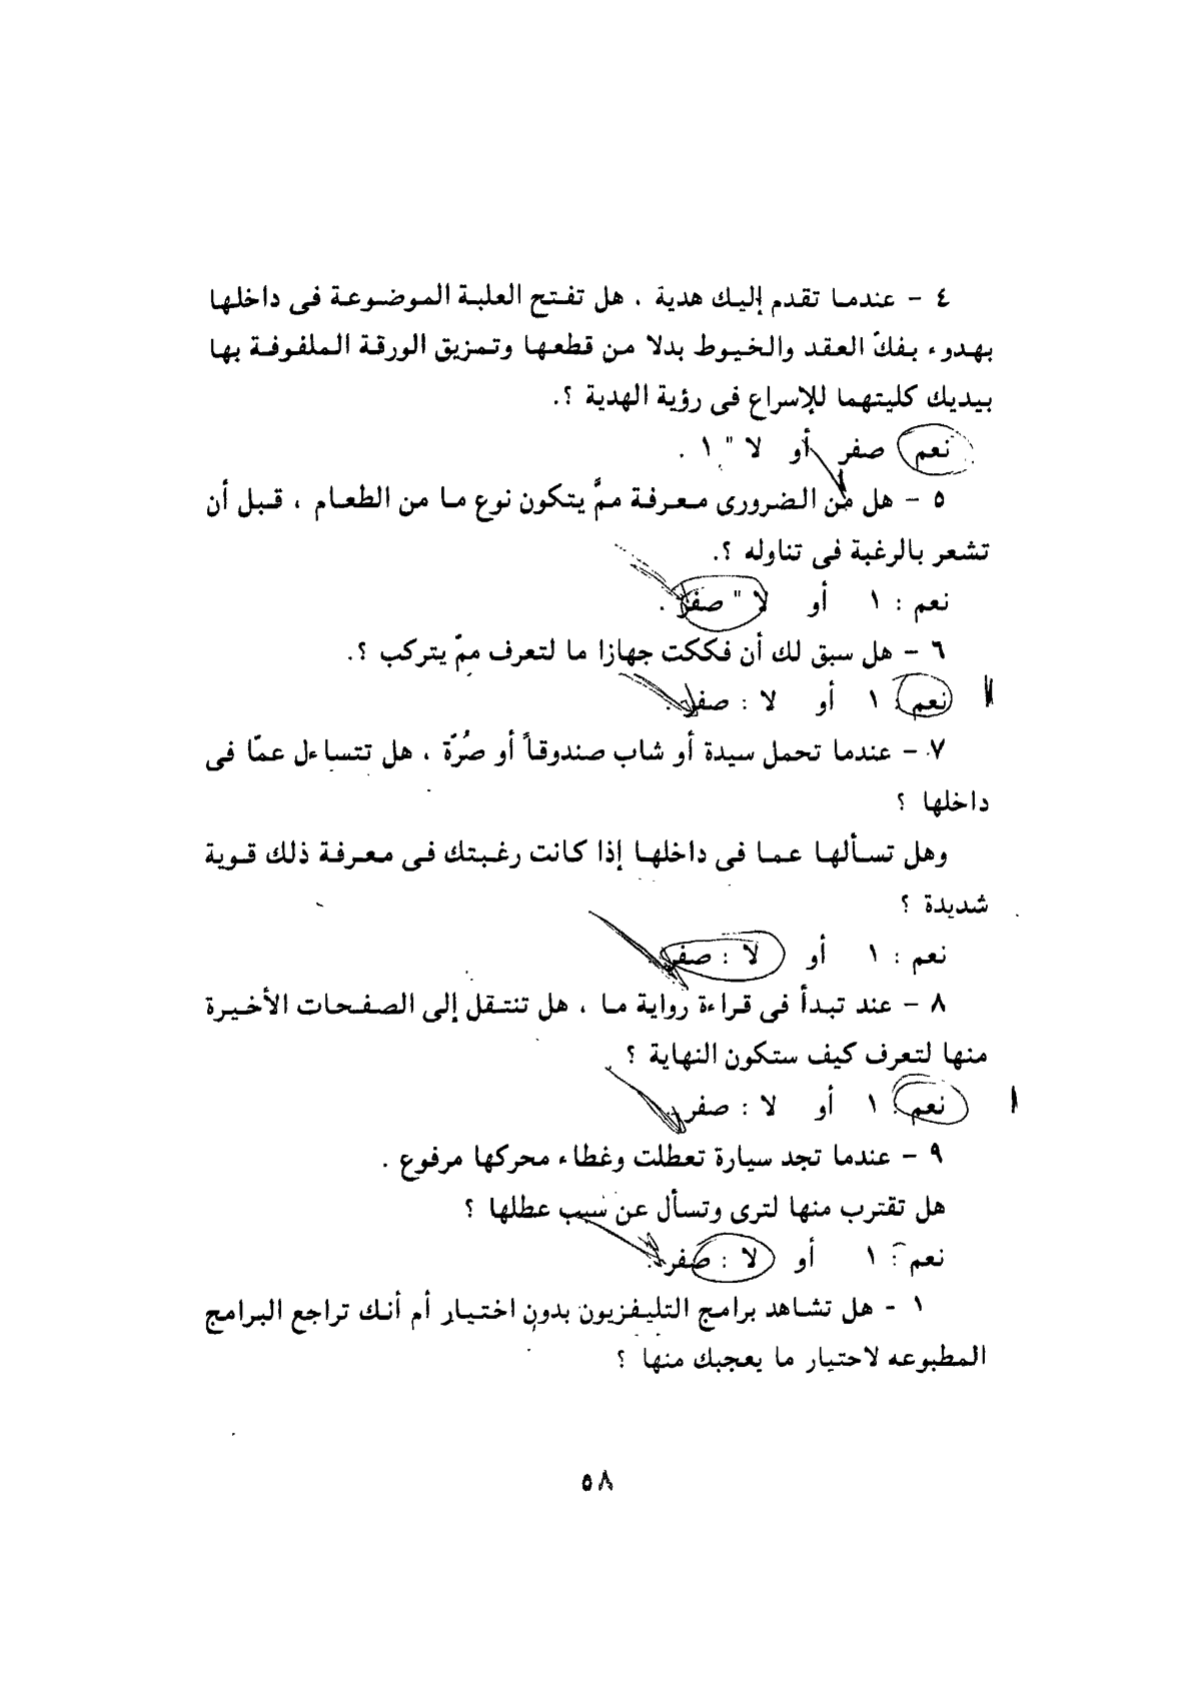 ٤ – عندما تقدم إليك هدية ، هل تفتح العلبة الموضوعة فى داخلها
بهدوء بفكّ العقد والخيوط بدلا من قطعها وتمزيق الورقة الملفوفة بها
بيديك كليتهما للإسراع فى رؤية الهدية ؟.
نعم صفر أو لا " ١ .
٥ – هل من الضرورى معرفة ممَّ يتكون نوع ما من الطعام ، قبل أن
تشعر بالرغبة فى تناوله ؟.
نعم : ١ أو لا " صفر .
٦ – هل سبق لك أن فككت جهازا ما لتعرف ممّ يتركب ؟.
نعم : ١ أو لا : صفر .
٧ – عندما تحمل سيدة أو شاب صندوقاً أو صُرّة ، هل تتساءل عمّا فى
داخلها ؟
وهل تسألها عما فى داخلها إذا كانت رغبتك فى معرفة ذلك قوية
شديدة ؟
نعم : ١ أو لا : صفر
٨ – عند تبدأ فى قراءة رواية ما ، هل تنتقل إلى الصفحات الأخيرة
منها لتعرف كيف ستكون النهاية ؟
نعم : ١ أو لا : صفر
٩ – عندما تجد سيارة تعطلت وغطاء محركها مرفوع .
هل تقترب منها لترى وتسأل عن سبب عطلها ؟
نعم : ١ أو لا : صفر .
١ - هل تشاهد برامج التليفزيون بدون اختيار أم أنك تراجع البرامج
المطبوعه لاختيار ما يعجبك منها ؟
٥٨